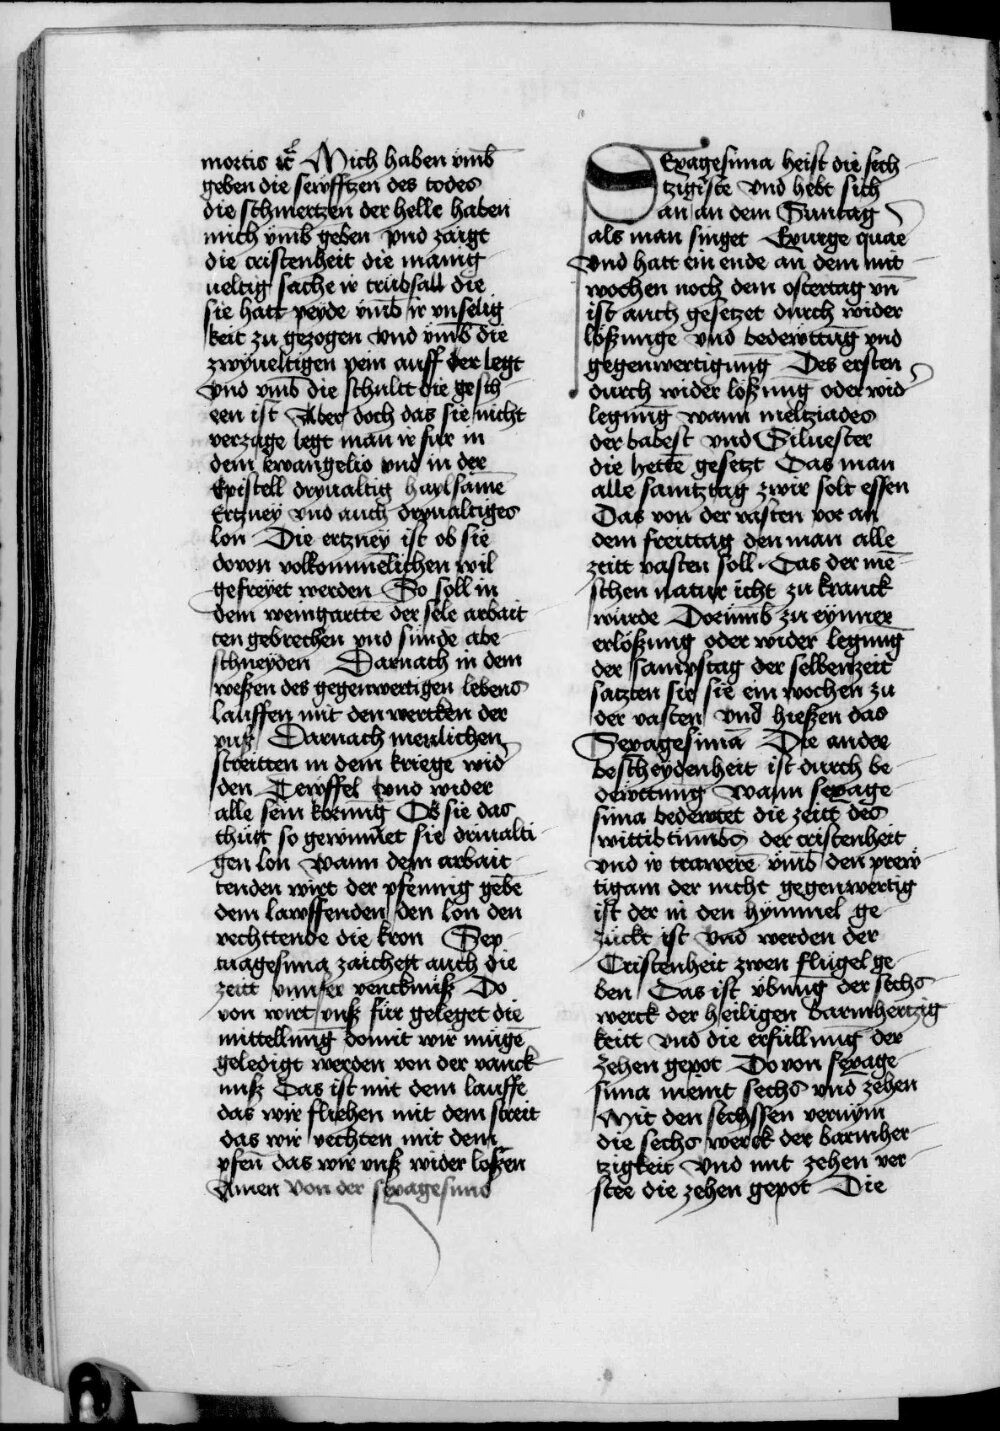 mortis ꝛc̃ Mich haben vmb
geben die sewfftzen des todes
die schmertzen der helle haben
mich vmb geben vnd zaigt
die cristenheit die manig
ueltig sache ir trubsall die
sie hatt peyde vmb ir vnselig
keit zu gezogen vnd vmb die
zwyueltigen pein auff der legt
vnd vmb die schultt die gesch
een ist Aber doch das sie nicht
verzage legt man ir fur in
dem ewangelio vnd in der
Epistell dryualtig haylsame
Ertzney vnd auch dryualtiges
lon Die ertzney ist ob sie
dovon volkommelichen wil
gefreyet werden So soll in
dem weingartte der sele arbait
ten gebrechen vnd sunde abe
schneyden Darnach in dem
weßen des gegenwertigen lebens
lauffen mit den wercken der
puß Darnach menlichen
streitten in dem kriege wid
den Tewffel vnd wider
alle sein korung Ob sie das
thutt so gewinnet sie driualti
gen lon wann dem arbait
tenden wirt der pfennig gebe
dem lawffenden den lon den
vechttende die kron Sep
tuagesima zaichett auch die
zeitt vnnser vencknuß Do
von wirt vnß für geleget die
mittellung domit wir müge
geledigt werden von der vanck
nuß Das ist mit dem lauffe
das wir fliehen mit dem streit
das wir vechten mit dem
pfen das wir vnß wider loßen
Amen von der sexagesima
SExagesima heist die sech
tzigiste vnd hebt sich
an an dem Suntag
als man singet Exurge quae
vnd hatt ein ende an dem mit
wochen noch dem ostertag vn̄
ist auch gesetzet durch wider
lößunge vnd bedewttūg vnd
gegenwertigung Des ersten
durch wider lößung oder wid
legung wann meltziades
der babest vnd Siluester
die hette gesetzt Das man
alle samtztag zwir solt essen
Das von der vasten vor an
dem freittag den man alle
zeitt vasten soll Das der mē
schen natur icht zu kranck
wurde Dorumb zu eynner
erlößung oder wider legung
der sampstag der selben zeit
satzten sie sie ein wochen zu
der vasten vnd hießen das
Sexagesima Die ander
bescheydenheit ist durch be
dewttung Wann sexage
sima bedewtet die zeitt des
wittibtumbs der cristenheit
vnd ir trawere vmb den prew
tigam der nicht gegenwertig
ist der in den hymmel ge
zückt ist vnd werden der
Cristenheit zwen flügel ge
ben Das ist vbung der sechs
werck der heiligen barmhertzig
keitt vnd die erfüllung der
zehen gepot Do von sexage
sima nemt sechs vnd zehen
Mit den sechssen vernym
die sechs werck der barmher
tzigkeit vnd mit zehen ver
stee die zehen gepot Die